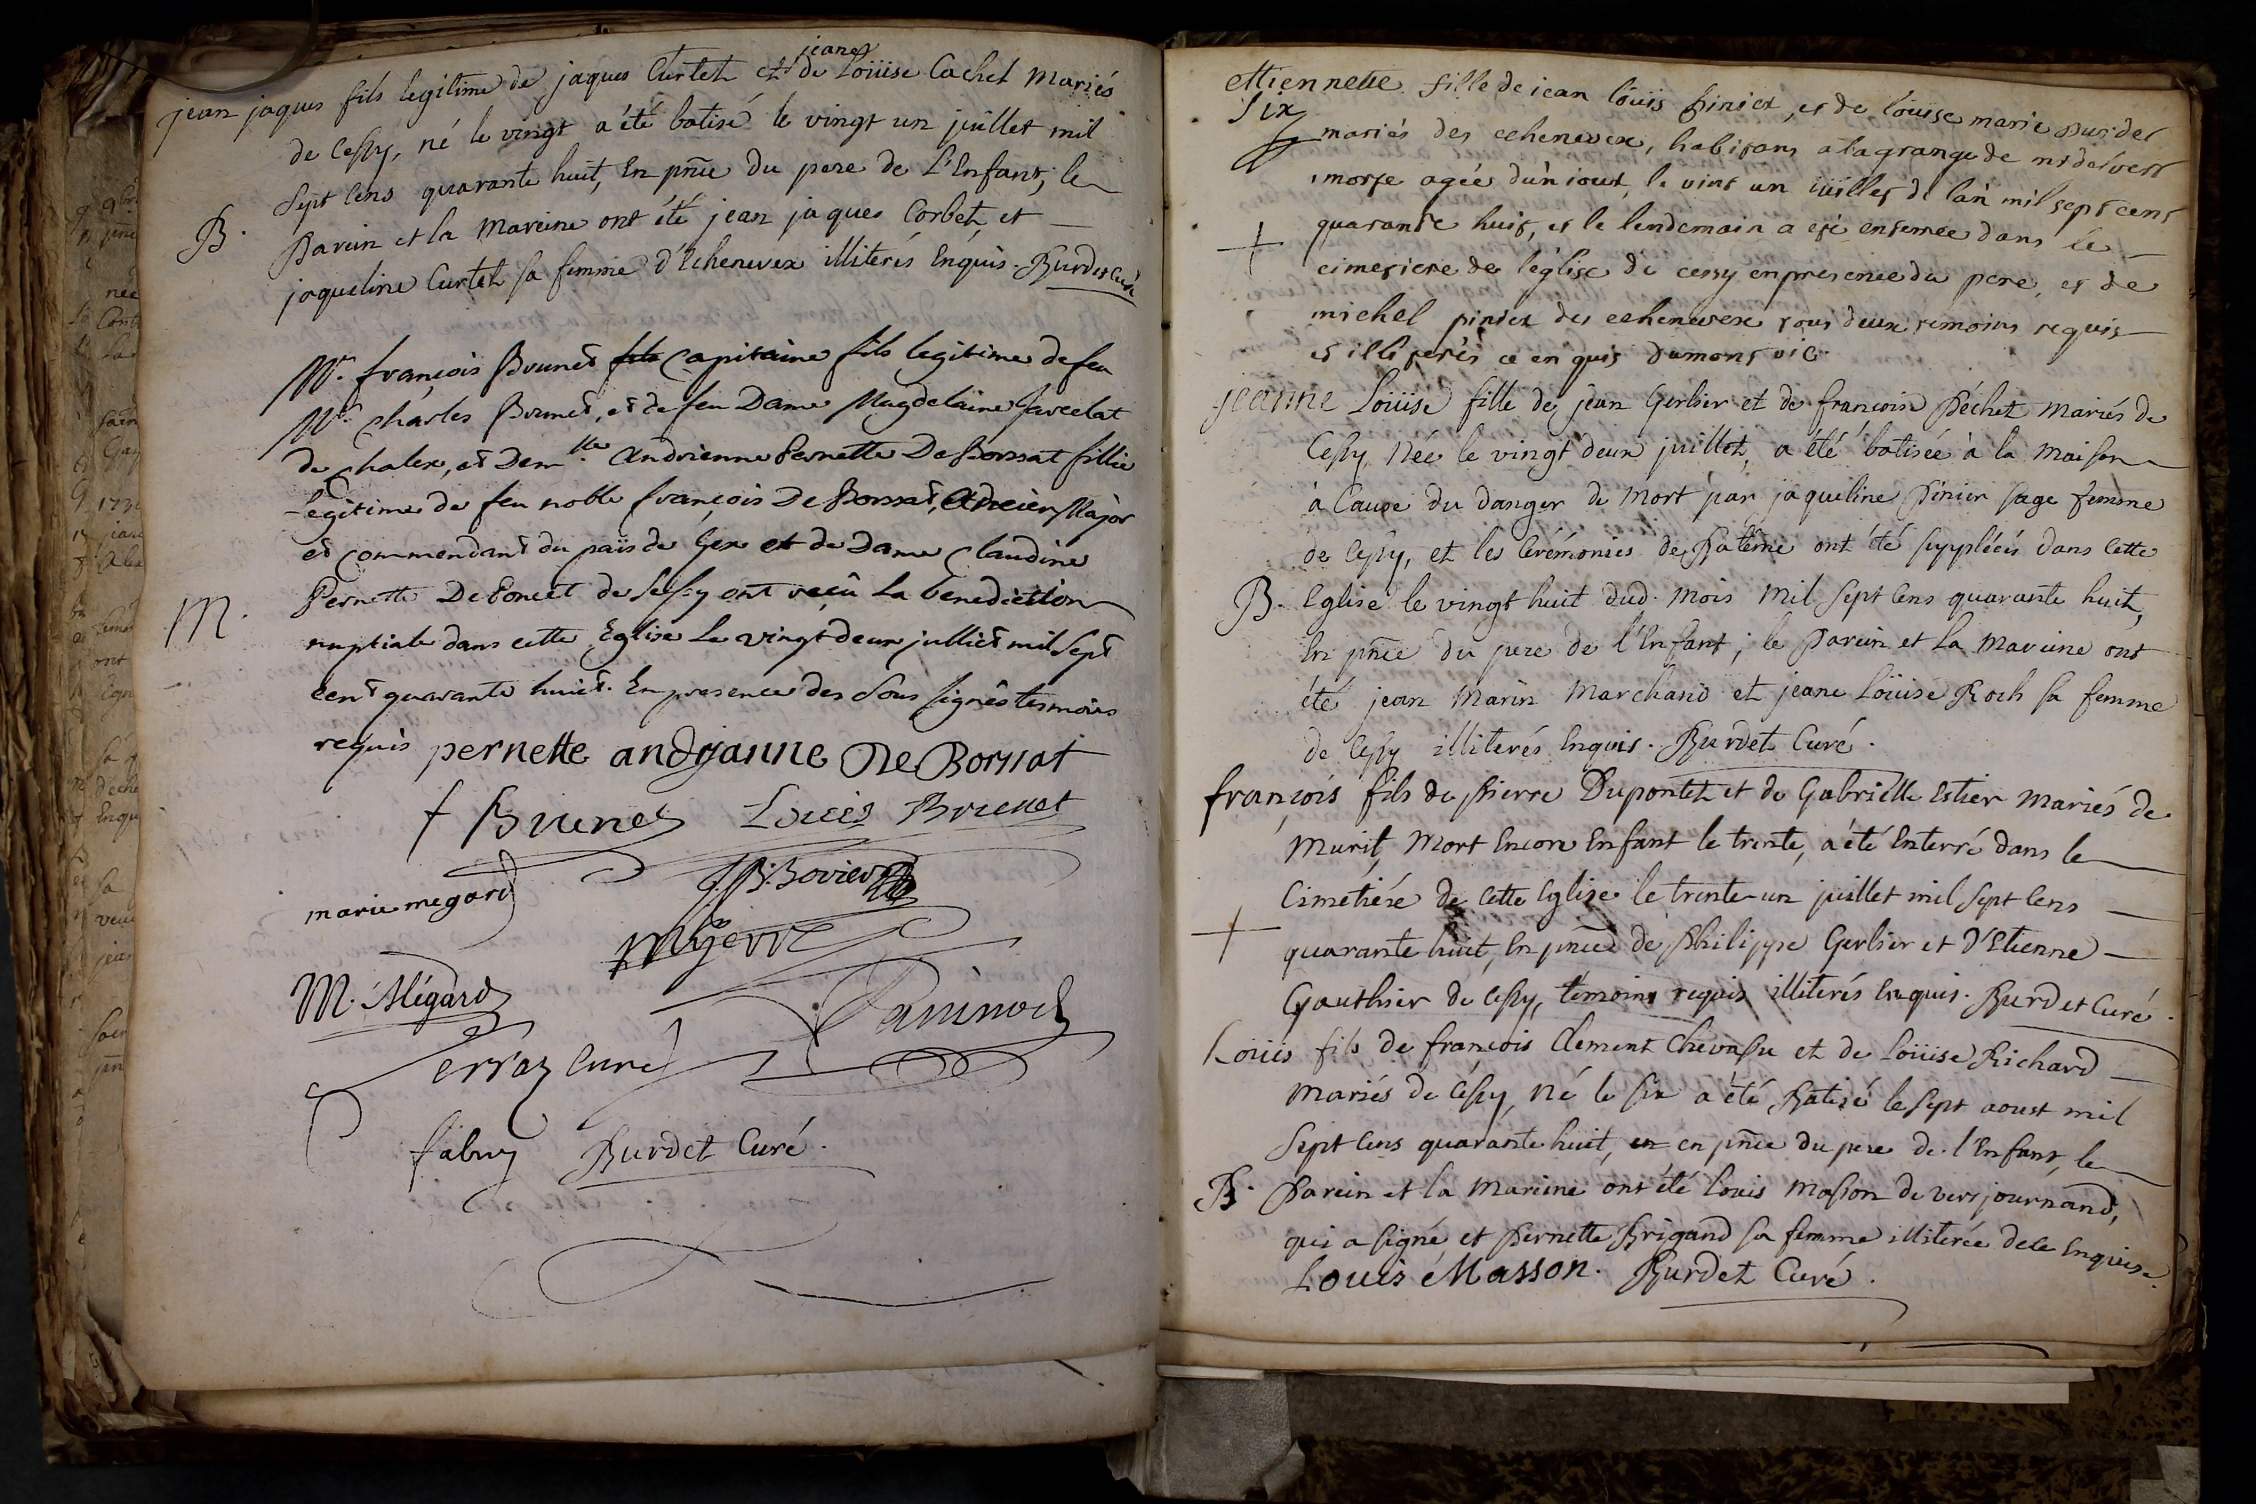 jean jaques fils legitime de jaques Curtet et de jeane Loüise Cachet Mariés
de Cessy, né le vingt a été batisé le vingt un juillet mil
Sept Cens quarante huit, En pñce du pere de L'Enfant, le
B. Parein et la Mareine ont été jean jaques Corbet, et
jaqueline Curtet sa femme d'Echenevex illiterés Enquis. Burdet Curé
Mr. françois Brunet fils Capitaine fils legitime de feu
Mr. Charles Brunet, et de feu Dame Magdelaine Javcelat
de Chalex, et Demlle Andrienne Pernette De Borssat fillie
legitime de feu noble françois De Borssat, Ancien Major
et Commendant du païs de Gex et de Dame Claudine
M. Pernette De Poncet de Sessy ont reçû la benediction
nuptiale dans cette Eglise Le vingt deux julliet mil Sept
cent quarante huict. En presence des Sous signés tesmoins
requis pernette andryanne De Borssat
f Brunet Louis Brunet
marie megard J.B. Bovier
M. Mégard
Perraz Curé
fabry Burdet Curé.
ettiennette fille de iean loüis pinier, et de loüise marie
six mariés des echenevex, habitans a la grange de
morte agée d'un iour, le vint un iüillet de lan mil sept cent
+ quarante huit, et le lendemain a eté enterrée dans le
cimetiere de leglise de cessy en presence du pere, et de
michel pinier des echenevex tous deux temoins requis
et illiterés ce enquis dumont vic.
jeanne Loüise fille de jean Gerlier et de francoise Péchet mariés de
Cessy Née le vingt deux juillet, a été batisée à la maison
à Cause du danger de mort par jaqueline Pinier sage femme
de Cessy, et les Cérémonies de Batême ont été suppléées dans Cette
B. Eglise le vingt huit dud. mois mil Sept Cens quarante huit,
En pñce du pere de l'Enfant; le Parein et la Mareine ont
été jean Marin Marchand et jeane Loüise Roch sa femme
de Cessy illiterés Enquis. Burdet Curé.
françois fils de Pierre Dupontet et de Gabrielle Estier mariés de
Murit, Mort Encore Enfant le trente, a été Enterré dans le
Cimetiére de Cette Eglise le trente-un juillet mil Sept Cens
+ quarante huit, En pñce de Philippe Gerlier et d'Etienne
Gauthier de Cessy, témoins requis illiterés Enquis. Burdet Curé.
Loüis fils de francois Clement Chevassu et de Loüise Richard
Mariés de Céssy, Né le six a été Batisé le sept aoust mil
Sept Cens quarante huit, en en pñce du pere de l'Enfant, le
B. Parein et la Mareine ont été Louis Masson de versjournand,
qui a signé, et Pernette Brigand sa femme illiterée de ce Enquise.
Louis Masson. Burdet Curé.